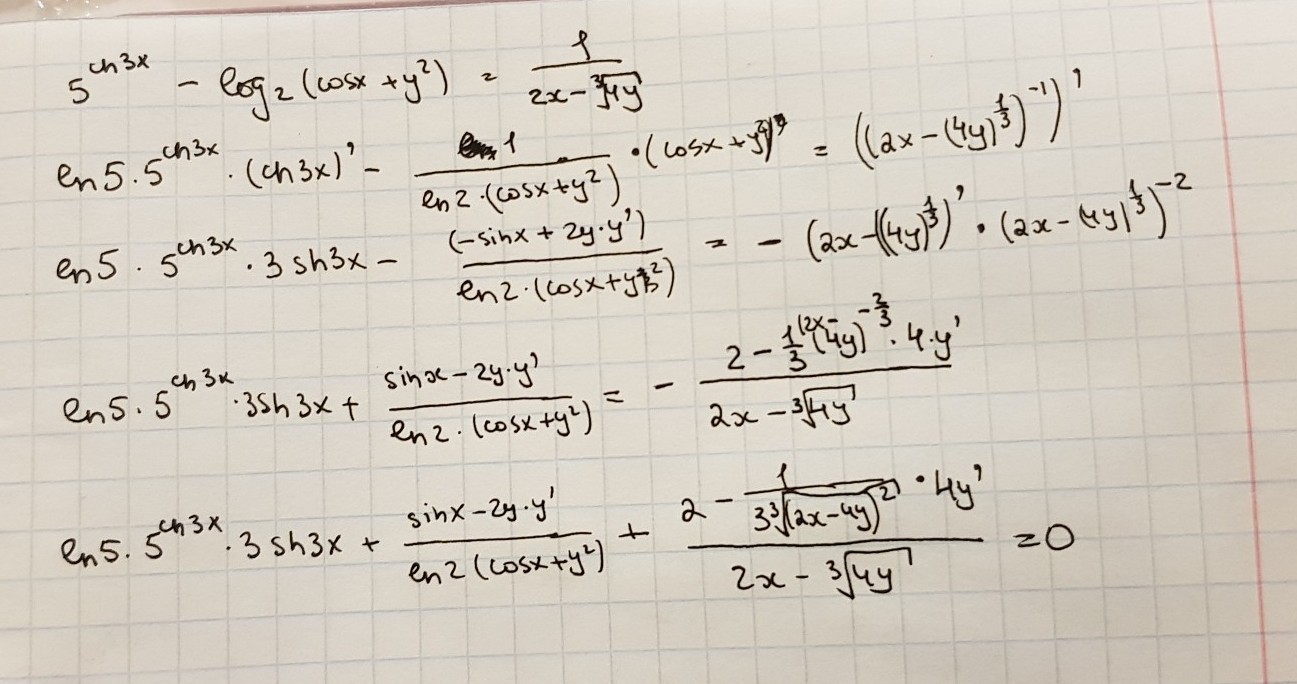 5^{ch3x} - log_2(cosx + y^2) = \frac{1}{2x - \sqrt[3]{4y}}
ln5 · 5^{ch3x} · (ch3x)' - \frac{1}{ln2·(cosx+y^2)} · (cosx + y^2)' = ((2x - (4y)^{\frac{1}{3}})^{-1})'
ln5 · 5^{ch3x} · 3 sh3x - \frac{(-sinx + 2y·y')}{ln2·(cosx+y^2)} = - (2x - ((4y)^{\frac{1}{3}})' · (2x - (4y)^{\frac{1}{3}})^{-2}
ln5 · 5^{ch3x} · 3sh3x + \frac{sinx - 2y·y'}{ln2·(cosx+y^2)} = - \frac{2 - \frac{1}{3}(2x-4y)^{-\frac{2}{3}} · 4·y'}{2x - \sqrt[3]{4y}}
ln5 · 5^{ch3x} · 3 sh3x + \frac{sinx - 2y·y'}{ln2(cosx+y^2)} + \frac{2 - \frac{1}{3\sqrt[3]{(2x-4y)^2}} · 4y'}{2x - \sqrt[3]{4y}} = 0